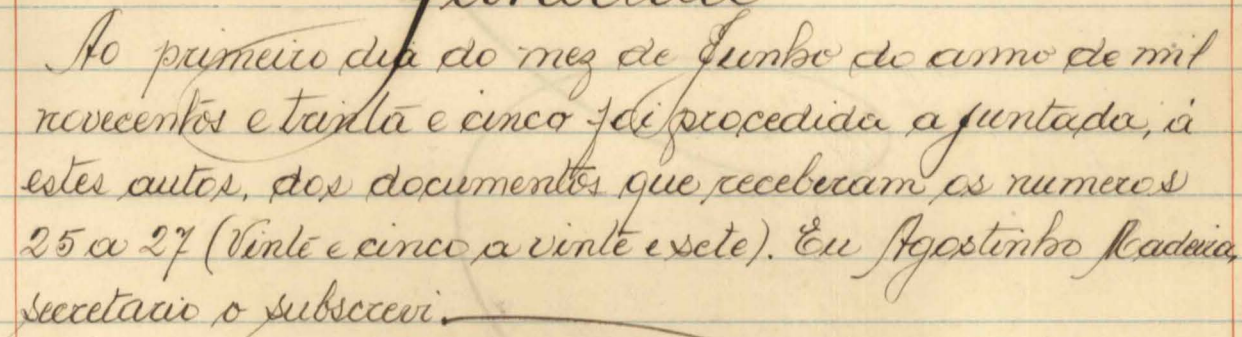 Ao primeiro dia do mez de Junho do anno de mil
novecentos e trinta e cinco foi procedida a juntada, á
estes autos, dos documentos que receberam os numeros
25 a 27 (Vinte e cinco a vinte e sete). Eu Agostinho Madeira,
secretario o subscrevi.